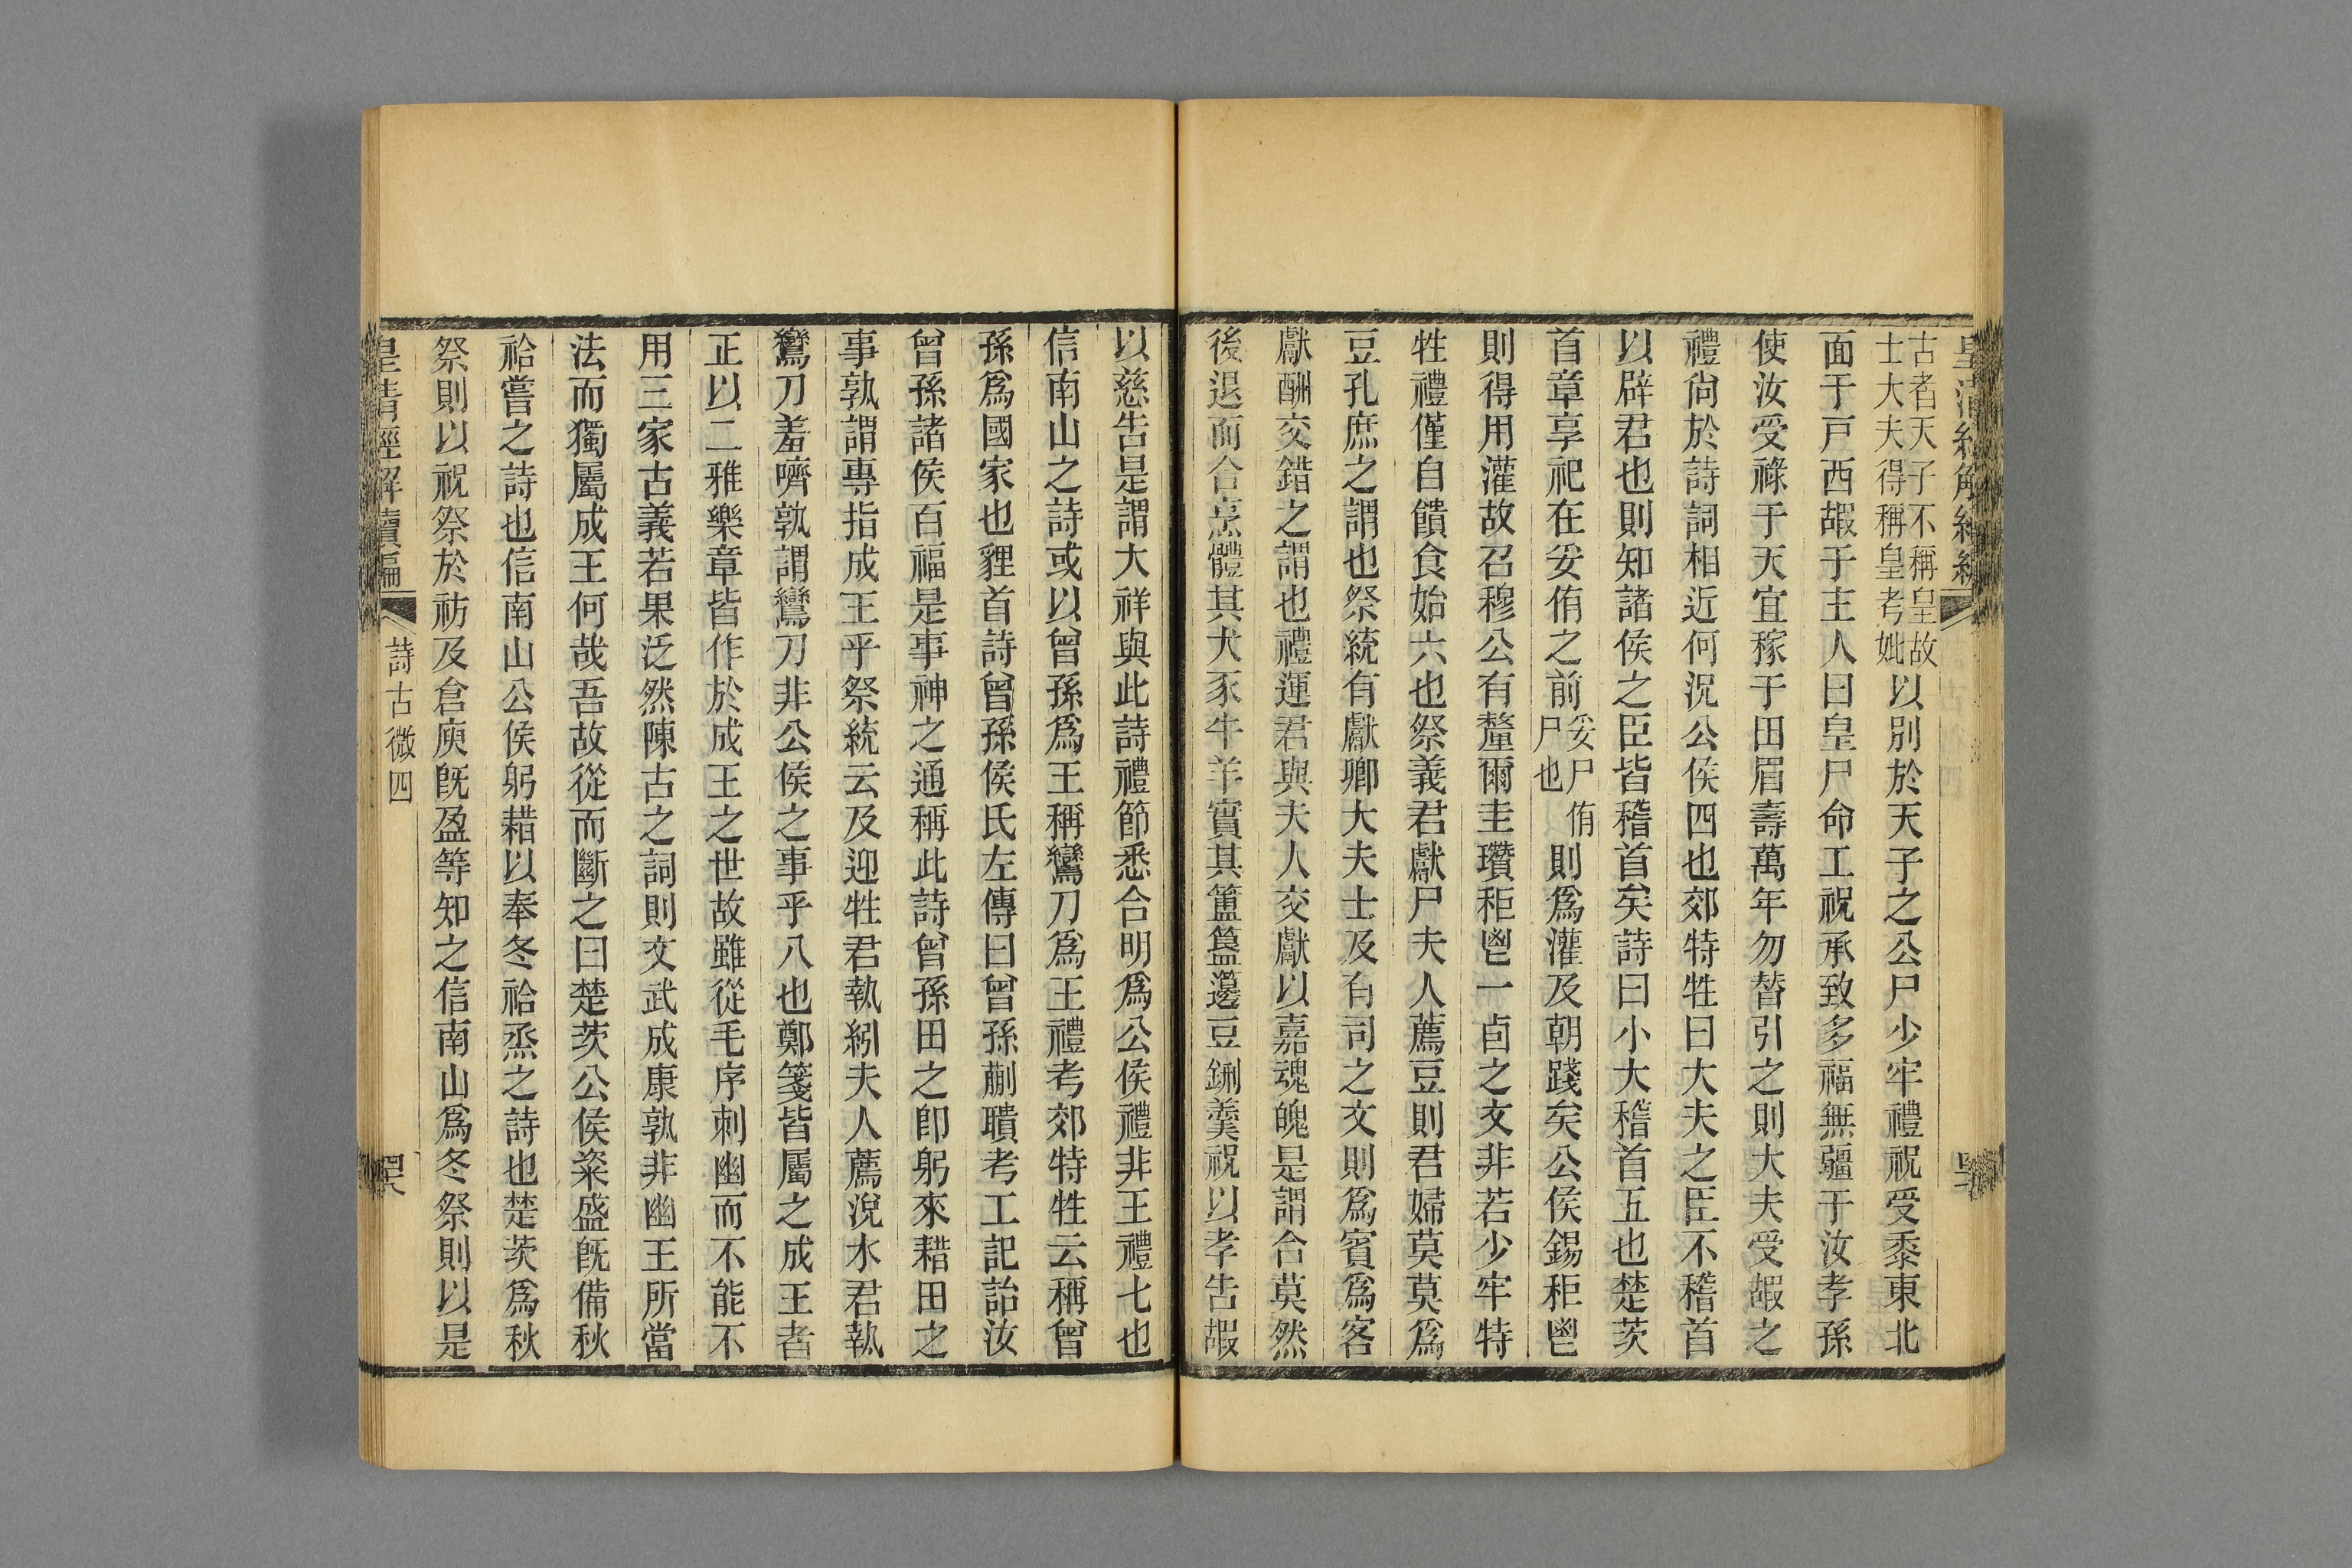 皇清經解續編
古者天子不稱皇故
士大夫得稱皇考妣以別於天子之公尸少牢禮祝受黍東北
面于戸西嘏于主人曰皇尸命工祝承致多福無疆于汝孝孫
使汝受祿于天宜稼于田眉壽萬年勿替引之則大夫受嘏之
禮尙於詩詞相近何況公侯四也郊特牲曰大夫之臣不稽首
以辟君也則知諸侯之臣皆稽首矣詩曰小大稽首五也楚茨
首章享祀在妥侑之前妥尸侑
尸也則爲灌及朝踐矣公侯錫秬鬯
則得用灌故召穆公有釐爾圭瓚秬鬯一卣之文非若少牢特
牲禮僅自饋食始六也祭義君獻尸夫人薦豆則君婦莫莫爲
豆孔庶之謂也祭統有獻卿大夫士及有司之文則爲賓爲客
獻酬交錯之謂也禮運君與夫人交獻以嘉魂魄是謂合莫然
後退而合烹體其犬豕牛羊實其簠簋籩豆鉶羹祝以孝告嘏
以慈告是謂大祥與此詩禮節悉合明爲公侯禮非王禮七也
信南山之詩或以曾孫爲王稱鸞刀爲王禮考郊特牲云稱曾
孫爲國家也貍首詩曾孫侯氏左傳曰曾孫蒯聵考工記詒汝
曾孫諸侯百福是事神之通稱此詩曾孫田之卽躬來耤田之
事孰謂專指成王乎祭統云及迎牲君執紖夫人薦涚水君執
鸞刀羞嚌孰謂鸞刀非公侯之事乎八也鄭箋皆屬之成王者
正以二雅樂章皆作於成王之世故雖從毛序刺幽而不能不
用三家古義若果泛然陳古之詞則文武成康孰非幽王所當
法而獨屬成王何哉吾故從而斷之曰楚茨公侯粢盛旣備秋
祫嘗之詩也信南山公侯躬耤以奉冬祫烝之詩也楚茨爲秋
祭則以祝祭於祊及倉庾旣盈等知之信南山爲冬祭則以是
皇清經解續編
詩古微四